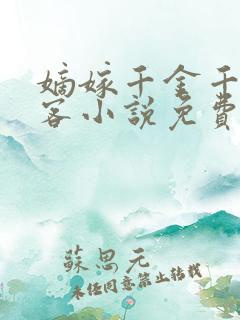 嫡嫁千金千
客小說免費
蘇思元
未經同意禁止轉載